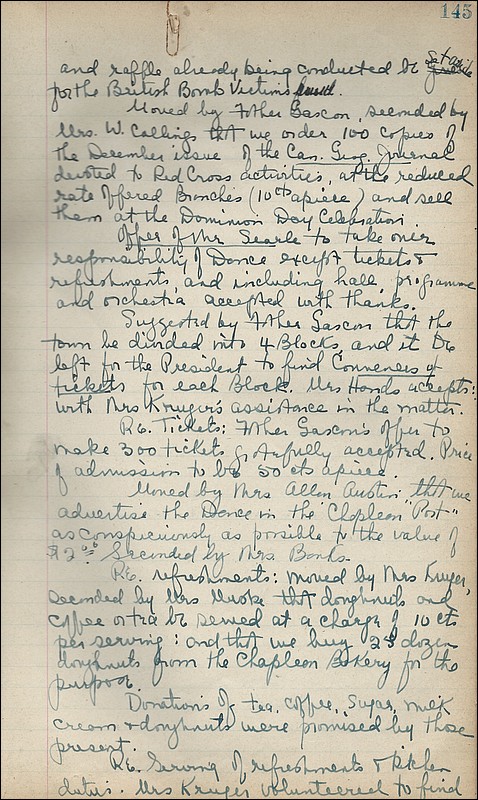 145
and raffle already being conducted be
for the British Bomb Victims fund.
Moved by Father Gascon, seconded by
Mrs. W. Collings that we order 100 copies of
the December issue of the Can. Geog. Journal
devoted to Red Cross activities, at the reduced
rate offered Branches (10 cts apiece) and sell
them at the Dominion Day Celebration.
Offer of Mr. Searle to take over
responsibility of Dance except tickets &
refreshments, and including hall, programme
and orchestra accepted with thanks.
Suggested by Father Gascon that the
town be divided into 4 Blocks, and it be
left for the President to find Conveners of
tickets for each Block. Mrs Hands accepts:
with Mrs Kruger's assistance in the matter.
Re. Tickets: Father Gascon's offer to
make 300 tickets gratefully accepted. Price
of admission to be 50 cts apiece.
Moved by Mrs Allan Austin that we
advertise the Dance in the "Chapleau Post"
as conspicuously as possible to the value of
$2.00 Seconded by Mrs. Banks.
Re. refreshments: moved by Mrs Kruger,
seconded by Mrs that doughnuts and
coffee or tea be served at a charge of 10 cts
per serving: and that we buy dozen
doughnuts from the Chapleau Bakery for the
purpose.
Donations of tea, coffee, sugar, milk
cream & doughnuts were promised by those
present.
Re. Serving of refreshments & kitchen
duties. Mrs Kruger volunteered to find